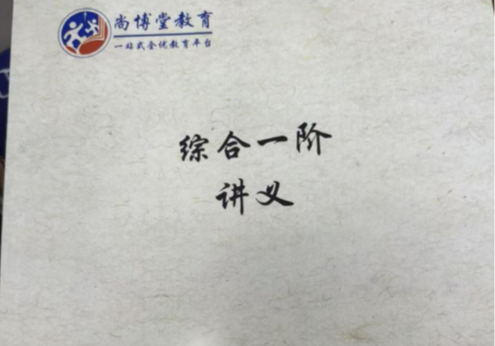 尚博堂教育
一站式全优教育平台
综合一阶
讲义